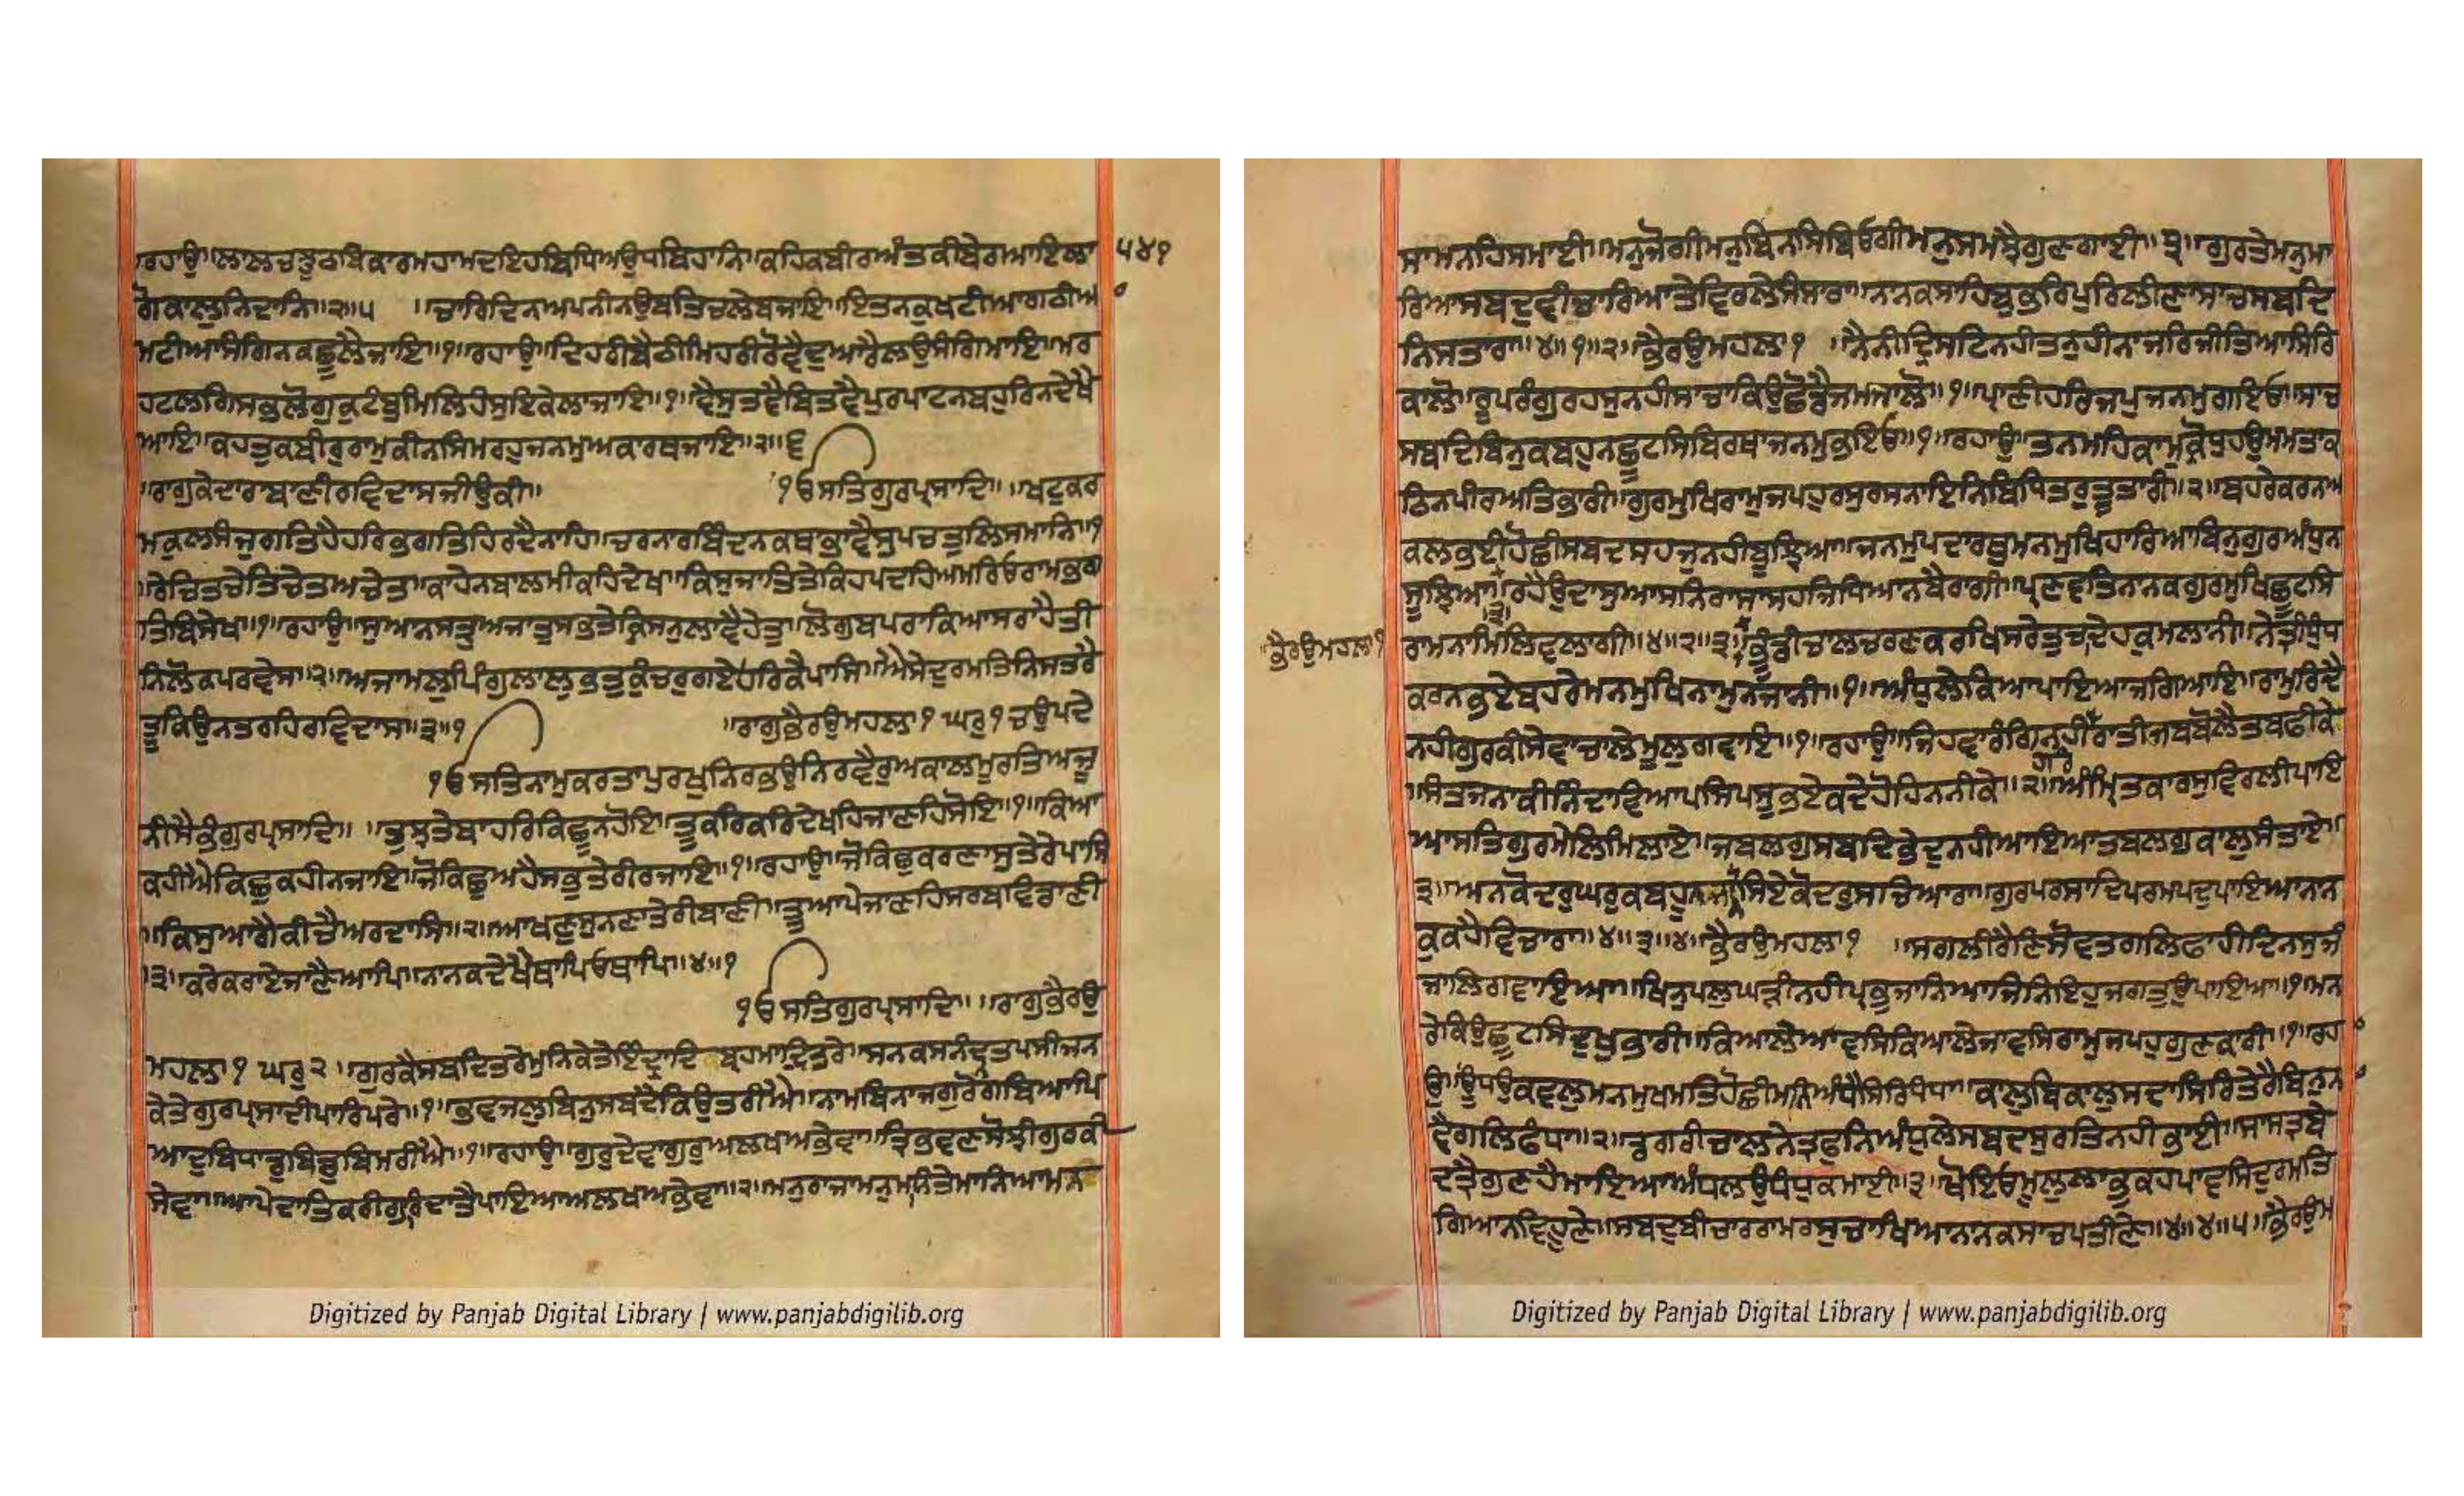 ਰਹਾਉ॥ਲਾਲਚਝੂਠਬਿਕਾਰਮਹਾਮਦਇਹਬਿਧਿਅਉਧਬਿਹਾਨਿ॥ਕਹਿਕਬੀਰਅੰਤਕੀਬੇਰਆਇਲਾ ੫੪੧
ਗੋਕਾਲੁਨਿਦਾਨਿ॥੨॥੫ ॥ਚਾਰਿਦਿਨਅਪਨੀਨਉਬਤਿਚਲੇਬਜਾਇ॥ਇਤਨਕੁਖਟੀਆਗਠੀਅ
ਮਟੀਆਸੰਗਿਨਕਛੂਲੈਜਾਇ॥੧॥ਰਹਾਉ॥ਦਿਹਰੀਬੈਠੀਮਿਹਰੀਰੋਵੈਦੁਆਰੈਲਉਸੰਗਿਮਾਇ॥ਮਰ
ਹਟਲਗਿਸਭੁਲੋਗੁਕੁਟੰਬੁਮਿਲਿਹੰਸੁਇਕੇਲਾਜਾਇ॥੧॥ਵੈਸੁਤਵੈਬਿਤਵੈਪੁਰਪਾਟਨਬਹੁਰਿਨਦੇਖੈ
ਆਇ॥ਕਹਤੁਕਬੀਰੁਰਾਮੁਕੀਨਸਿਮਰਹੁਜਨਮੁਅਕਾਰਥਜਾਇ॥੨॥੬
॥ਰਾਗੁਕੇਦਾਰਾਬਾਣੀਰਵਿਦਾਸਜੀਉਕੀ॥ ੴਸਤਿਗੁਰਪ੍ਰਸਾਦਿ॥ ॥ਖਟੁਕਰ
ਮਕੁਲਸੰਜੁਗਤਿਹੈਹਰਿਭਗਤਿਹਿਰਦੈਨਾਹਿ॥ਚਰਨਾਰਬਿੰਦਨਕਥਭਾਵੈਸੁਪਚਤੁਲਿਸਮਾਨਿ॥੧
॥ਰੇਚਿਤਚੇਤਿਚੇਤਅਚੇਤ॥ਕਾਹੇਨਬਾਲਮੀਕਹਿਦੇਖ॥ਕਿਸੁਜਾਤਿਤੇਕਿਹਪਦਹਿਅਮਰਿਓਰਾਮਭਗ
ਤਿਬਿਸੇਖ॥੧॥ਰਹਾਉ॥ਸੁਆਨਸਤ੍ਰੁਅਜਾਤੁਸਭਤੇਕ੍ਰਿਸਨੁਲਾਵੈਹੇਤੁ॥ਲੋਗੁਬਪਰਾਕਿਆਸਰਾਹੈਤੀ
ਨਿਲੋਕਪਰਵੇਸ॥੨॥ਅਜਾਮਲੁਪਿੰਗੁਲਾਲੁਭਤੁਕੁੰਚਰੁਗਏਹਰਿਕੈਪਾਸਿ॥ਐਸੇਦੁਰਮਤਿਨਿਸਤਰੇ
ਤੂਕਿਉਨਤਰਹਿਰਵਿਦਾਸ॥੩॥੧ ॥ਰਾਗੁਭੈਰਉਮਹਲਾ੧ ਘਰੁ੧ ਚਉਪਦੇ
ੴਸਤਿਨਾਮੁਕਰਤਾਪੁਰਖੁਨਿਰਭਉਨਿਰਵੈਰੁਅਕਾਲਮੂਰਤਿਅਜੂ
ਨੀਸੈਭੰਗੁਰਪ੍ਰਸਾਦਿ॥ ॥ਤੁਝਤੇਬਾਹਰਿਕਿਛੂਨਹੋਇ॥ਤੂਕਰਿਕਰਿਦੇਖਹਿਜਾਣਹਿਸੋਇ॥੧॥ਕਿਆ
ਕਹੀਐਕਿਛੁਕਹੀਨਜਾਇ॥ਜੋਕਿਛੁਅਹੈਸਭੁਤੇਰੀਰਜਾਇ॥੧॥ਰਹਾਉ॥ਜੋਕਿਛੁਕਰਣਾਸੁਤੇਰੈਪਾਸਿ
॥ਕਿਸੁਆਗੈਕੀਚੈਅਰਦਾਸਿ॥੨॥ਆਖਣੁਸੁਨਣਾਤੇਰੀਬਾਣੀ॥ਤੂਆਪੇਜਾਣਹਿਸਰਬਵਿਡਾਣੀ
॥੩॥ਕਰੇਕਰਾਏਜਾਣੈਆਪਿ॥ਨਾਨਕਦੇਖੈਥਾਪਿਓਥਾਪਿ॥੪॥੧
ੴਸਤਿਗੁਰਪ੍ਰਸਾਦਿ॥ ॥ਰਾਗੁਭੈਰਉ
ਮਹਲਾ੧ ਘਰੁ੨ ॥ਗੁਰਕੈਸਬਦਿਤਰੇਮੁਨਿਕੇਤੇਇੰਦ੍ਰਾਦਿਬ੍ਰਹਮਾਦਿਤਰੇ॥ਸਨਕਸਨੰਦਤਪਸੀਜਨ
ਕੇਤੇਗੁਰਪ੍ਰਸਾਦੀਪਾਰਿਪਰੇ॥੧॥ਭਵਜਲੁਬਿਨੁਸਬਦੈਕਿਉਤਰੀਐ॥ਨਾਮਬਿਨਾਜਗੁਰੋਗਿਬਿਆਪਿ
ਆਦੁਬਿਧਾਡੁਬਿਡੁਬਿਮਰੀਐ॥੧॥ਰਹਾਉ॥ਗੁਰੁਦੇਵਾਗੁਰੁਅਲਖਅਭੇਵਾ॥ਤ੍ਰਿਭਵਣਸੋਝੀਗੁਰਕੀ
ਸੇਵਾ॥ਆਪੇਦਾਤਿਕਰੀਗੁਰਿਦਾਤੈਪਾਇਆਅਲਖਅਭੇਵਾ॥੨॥ਮਨੁਰਾਜਾਮਨੁਮਨਤੇਮਾਨਿਆਮਨ
ਸਾਮਨਹਿਸਮਾਈ॥ਮਨੁਜੋਗੀਮਨੁਬਿਨਸਿਬਿਓਗੀਮਨੁਸਮਝੈਗੁਣਗਾਈ॥੩॥ਗੁਰਤੇਮਨੁਮਾ
ਰਿਆਸਬਦੁਵੀਚਾਰਿਆਤੇਵਿਰਲੇਸੰਸਾਰਾ॥ਨਾਨਕਸਾਹਿਬੁਭਰਿਪੁਰਿਲੀਣਾਸਾਚਸਬਦਿ
ਨਿਸਤਾਰਾ॥੪॥੧॥੨॥ਭੈਰਉਮਹਲਾ੧ ॥ਨੈਨੀਦ੍ਰਿਸਟਿਨਹੀਤਨੁਹੀਨਾਜਰਿਜੀਤਿਆਸਿਰਿ
ਕਾਲੋ॥ਰੂਪਰੰਗੁਰਹਸੁਨਹੀਸਾਚਾਕਿਉਛੋਡੈਜਮਜਾਲੋ॥੧॥ਪ੍ਰਾਣੀਹਰਿਜਪੁਜਨਮੁਗਇਓ॥ਸਾਚ
ਸਬਦਿਬਿਨੁਕਬਹੁਨਛੂਟਸਿਬਿਰਥਾਜਨਮੁਭਇਓ॥੧॥ਰਹਾਉ॥ਤਨਮਹਿਕਾਮੁਕ੍ਰੋਧੁਹਉਮਮਤਾਕ
ਠਿਨਪੀਰਅਤਿਭਾਰੀ॥ਗੁਰਮੁਖਿਰਾਮੁਜਪਹੁਰਸੁਰਸਨਾਇਨਿਬਿਧਿਤਰੁਤੂਤਾਰੀ॥੨॥ਬਹਰੇਕਰਨਅ
ਕਲਭਈਹੋਛੀਸਬਦਸਹਜੁਨਹੀਬੂਝਿਆ॥ਜਨਮੁਪਦਾਰਥੁਮਨਮੁਖਿਹਾਰਿਆਬਿਨੁਗੁਰਅੰਧੁਨ
ਸੂਝਿਆ॥੩॥ਰਹੈਉਦਾਸੁਆਸਨਿਰਾਸਾਸਹਜਿਧਿਆਨਬੈਰਾਗੀ॥ਪ੍ਰਣਵਤਿਨਾਨਕਗੁਰਮੁਖਿਛੂਟਸਿ
॥ਭੈਰਉਮਹਲਾ੧ ਰਾਮਨਾਮਿਲਿਵਲਾਗੀ॥੪॥੨॥੩॥ਭੂੰਡੀਚਾਲਚਰਣਕਰਖਿਸਰੇਤੁਚਦੇਹਕੁਮਲਾਨੀ॥ਨੇਤ੍ਰੀਧੁੰਧ
ਕਰਨਭਏਬਹਰੇਮਨਮੁਖਿਨਾਮੁਨਜਾਨੀ॥੧॥ਅੰਧੁਲੇਕਿਆਪਾਇਆਜਗਿਆਇ॥ਰਾਮੁਰਿਦੈ
ਨਹੀਗੁਰਕੀਸੇਵਾਚਾਲੇਮੂਲੁਗਵਾਇ॥੧॥ਰਹਾਉ॥ਜਿਹਵਾਰੰਗਿਨਹੀਹਰਿਰਾਤੀਜਬਬੋਲੈਤਬਫੀਕੇ
॥ਸੰਤਜਨਾਕੀਨਿੰਦਾਵਿਆਪਸਿਪਸੂਭਏਕਦੇਹੋਹਿਨਨੀਕੇ॥੨॥ਅੰਮ੍ਰਿਤਕਾਰਸੁਵਿਰਲੀਪਾਇ
ਆਸਤਿਗੁਰਮੇਲਿਮਿਲਾਏ॥ਜਬਲਗੁਸਬਦਿਭੇਦੁਨਹੀਆਇਆਤਬਲਗੁਕਾਲੁਸੰਤਾਏ॥
੩॥ਅਨਕੋਦਰੁਘਰੁਕਬਹੂਨਜਾਨਸਿਏਕੋਦਰੁਸਚਿਆਰਾ॥ਗੁਰਪਰਸਾਦਿਪਰਮਪਦੁਪਾਇਆਨਾਨ
ਕੁਕਹੈਵਿਚਾਰਾ॥੪॥੩॥੪॥ਭੈਰਉਮਹਲਾ੧ ॥ਸਗਲੀਰੈਣਿਸੋਵਤਗਲਿਫਾਹੀਦਿਨਸੁਜੰ
ਜਾਲਿਗਵਾਇਆ॥ਖਿਨੁਪਲੁਘੜੀਨਹੀਪ੍ਰਭੁਜਾਨਿਆਜਿਨਿਇਹੁਜਗਤੁਉਪਾਇਆ॥੧॥ਮਨ
ਰੇਕਿਉਛੂਟਸਿਦੁਖੁਭਾਰੀ॥ਕਿਆਲੇਆਵਸਿਕਿਆਲੇਜਾਵਸਿਰਾਮੁਜਪਹੁਗੁਣਕਾਰੀ॥੧॥ਰਹ
ਉ॥ਊਧਉਕਵਲੁਮਨਮੁਖਮਤਿਹੋਛੀਮਨਿਅੰਧੈਸਿਰਿਧੰਧਾ॥ਕਾਲੁਬਿਕਾਲੁਸਦਾਸਿਰਿਤੇਰੈਬਿਨੁਨ
ਵੈਗਲਿਫੰਧਾ॥੨॥ਡਗਰੀਚਾਲਨੇਤ੍ਰਫੁਨਿਅੰਧੁਲੇਸਬਦਸੁਰਤਿਨਹੀਭਾਈ॥ਸਾਸਤ੍ਰਬੇ
ਦਤ੍ਰੈਗੁਣਹੈਮਾਇਆਅੰਧਲਉਧੰਧੁਕਮਾਈ॥੩॥ਖੋਇਓਮੂਲੁਲਾਭੁਕਹਪਾਵਸਿਦੁਰਮਤਿ
ਗਿਆਨਵਿਹੂਣੇ॥ਸਬਦੁਬੀਚਾਰਰਾਮਰਸੁਚਾਖਿਆਨਾਨਕਸਾਚਪਤੀਣੇ॥੪॥੪॥੫॥ਭੈਰਉਮ
Digitized by Panjab Digital Library | www.panjabdigilib.org
Digitized by Panjab Digital Library | www.panjabdigilib.org